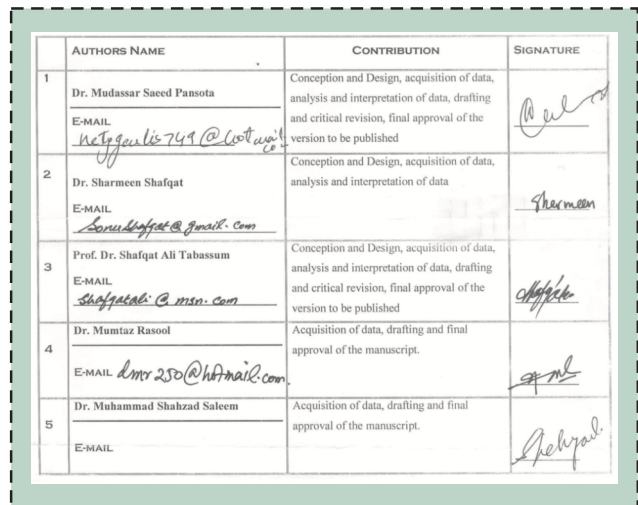 AUTHORS NAME CONTRIBUTION SIGNATURE
1
Dr. Mudassar Saeed Pansota
E-MAIL
Conception and Design, acquisition of data,
analysis and interpretation of data, drafting
and critical revision, final approval of the
version to be published
2
Dr. Sharmeen Shafqat
E-MAIL
Sonushafqat@gmail.com
Conception and Design, acquisition of data,
analysis and interpretation of data
Sharmeen
3
Prof. Dr. Shafqat Ali Tabassum
E-MAIL
Shafqatali@msn.com
Conception and Design, acquisition of data,
analysis and interpretation of data, drafting
and critical revision, final approval of the
version to be published
4
Dr. Mumtaz Rasool
E-MAIL dmr250@hotmail.com
Acquisition of data, drafting and final
approval of the manuscript.
5
Dr. Muhammad Shahzad Saleem
E-MAIL
Acquisition of data, drafting and final
approval of the manuscript.